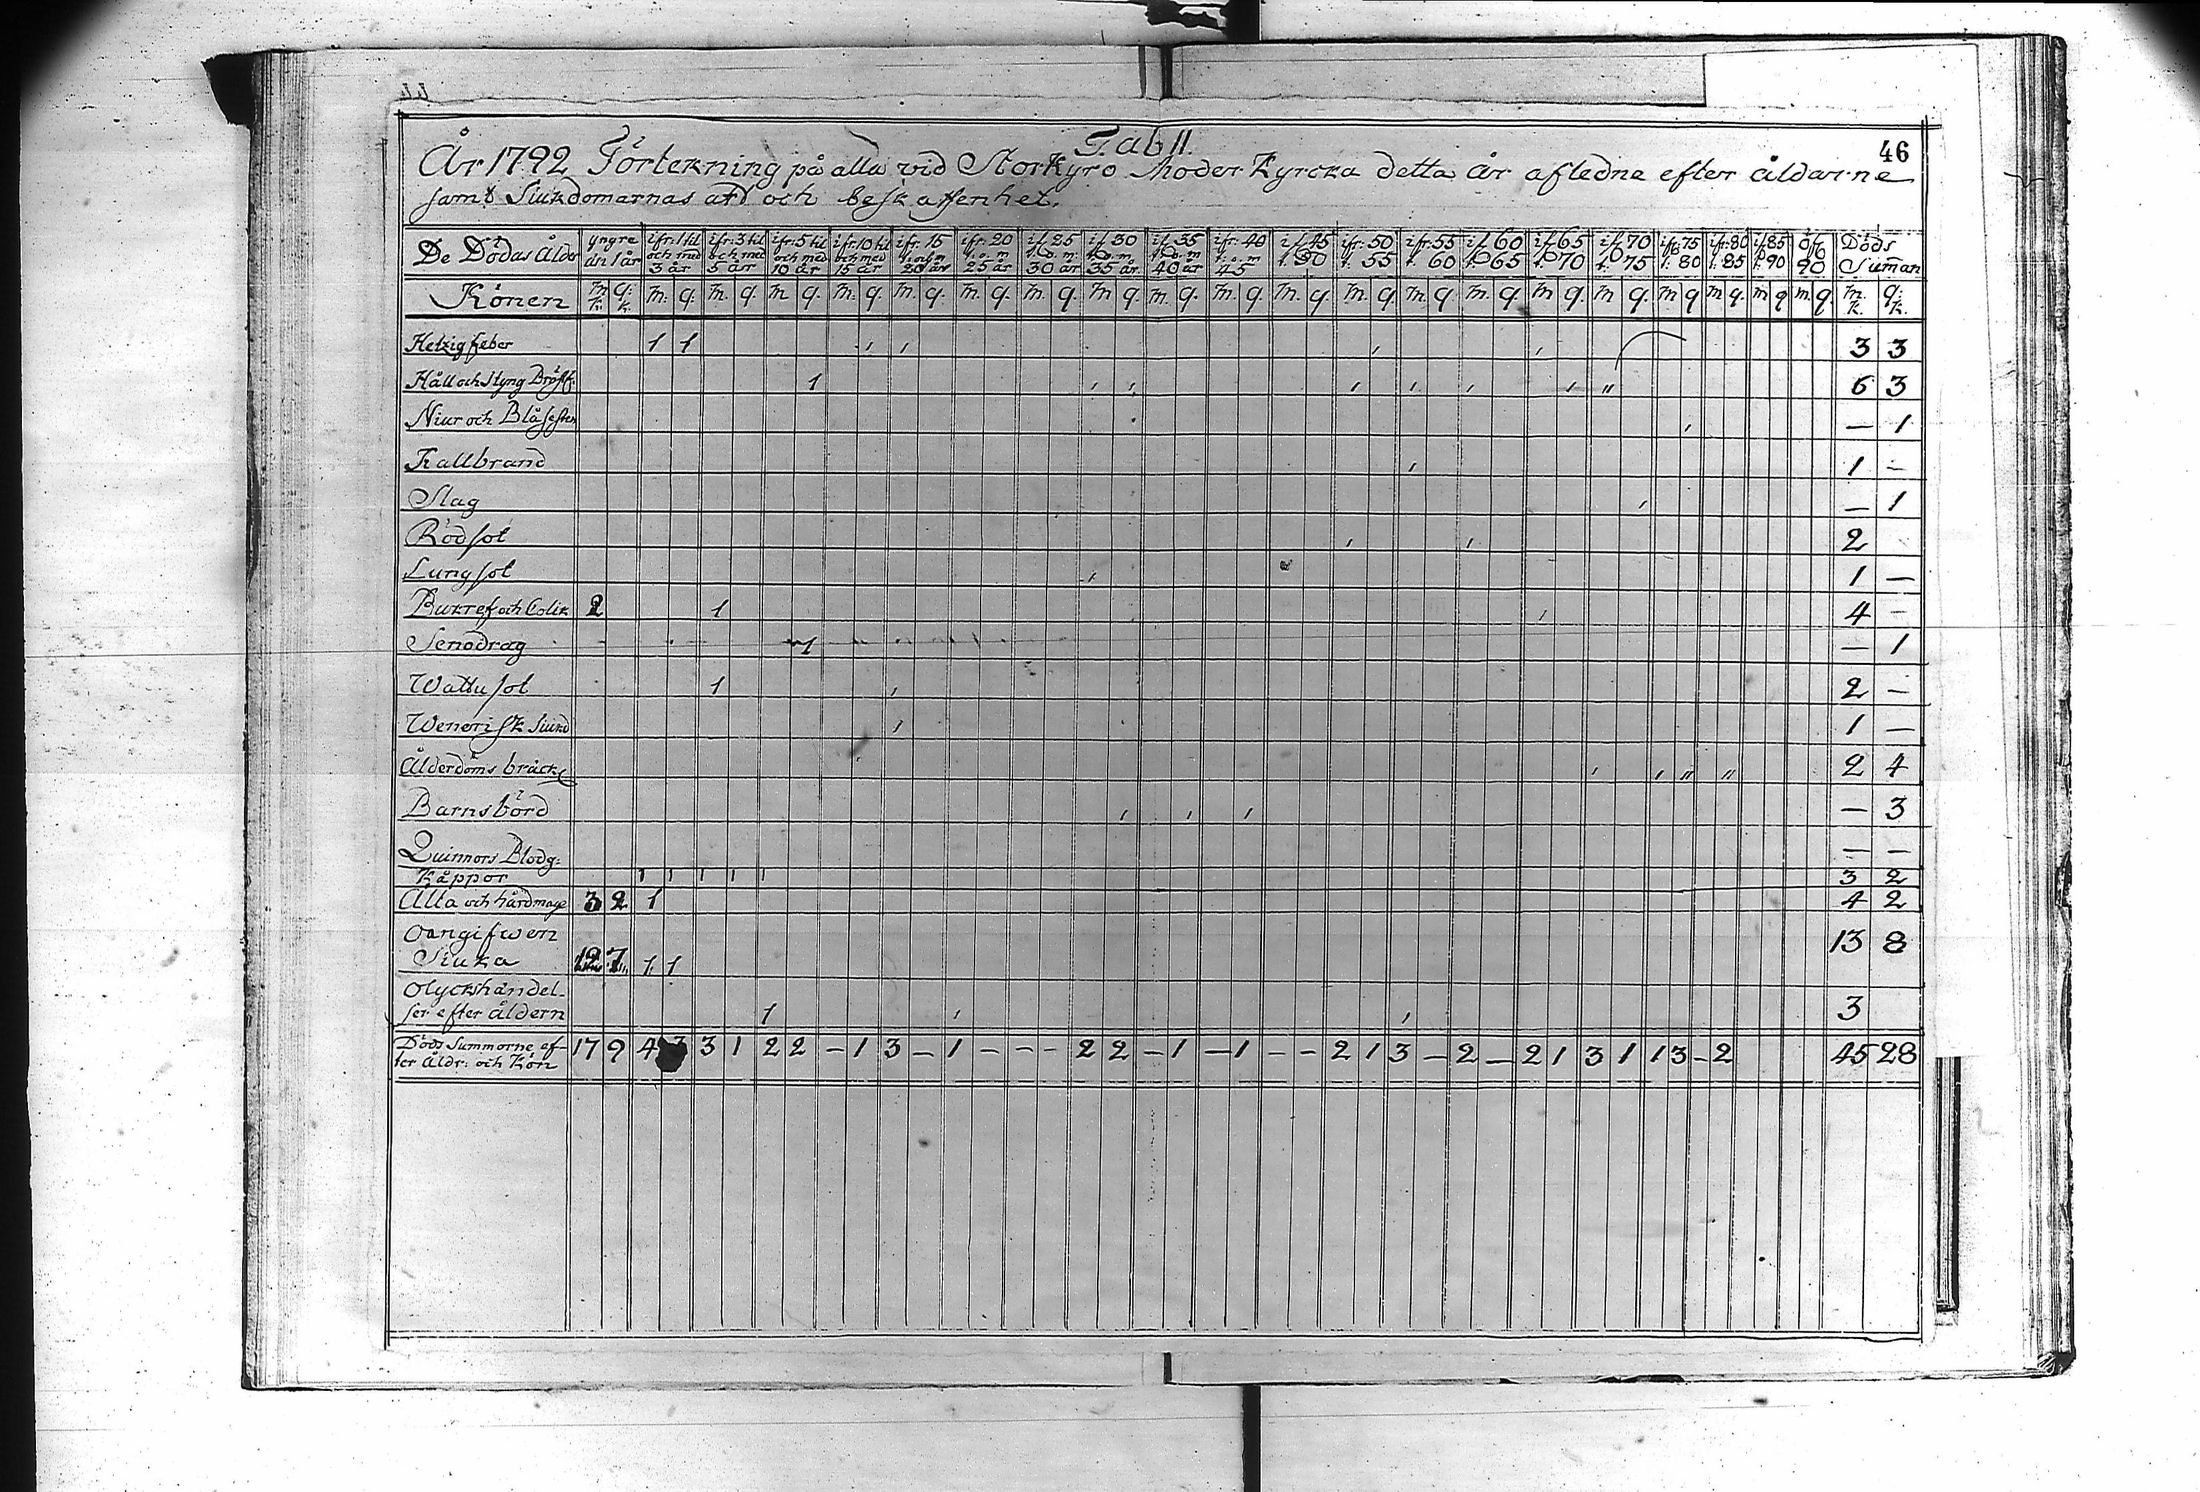 Tab II.
46
År 1792 Förtekning på alla vid Storkyro Moder Kyrcka detta år afledne efter åldarne
samt Siukdomarnas art och beskaffenhet.
De Dödas Ålder | yngre än 1 år | ifr: 1 til och med 3 år | ifr: 3 til och med 5 år | ifr: 5 til och med 10 år | ifr: 10 til och med 15 år | ifr: 15 t. och m 20 år | ifr: 20 t. o. m 25 år | if 25 t. o. m. 30 år | if 30 t. o. m 35 år | if 35 t. o. m 40 år | ifr: 40 t. o. m 45 | if 45 t. 50 | ifr: 50 t. 55 | ifr: 55 t. 60 | if 60 t. 65 | if 65 t. 70 | if 70 t. 75 | ifr 75 t. 80 | ifr: 80 t. 85 | if 85 t. 90 | öfr 90 | Döds Suman
Könen | m k. | q: k. | m. | q. | m. | q. | m | q. | m. | q. | m. | q. | m. | q. | m. | q. | m | q. | m. | q. | m. | q. | m. | q. | m. | q. | m. | q. | m. | q. | m | q. | m | q. | m | q | m | q. | m | q | m. | q | m. k. | q. k.
Hetzig feber 1 1 1 1 1 1 3 3
Håll och Styng Bröstf: 1 1 1 1 1 1 1 " 6 3
Niur och Blåsesten 1 — 1
Kallbrand 1 1 —
Slag 1 — 1
Rödsot 1 1 2
Lungsot 1 1 —
Bukref och Colik 2 1 1 4 —
Senedrag 1 — 1
Wattusot 1 1 2 —
Wenerisk Siukd 1 1 —
Ålderdoms bräck 1 1 " " 2 4
Barnsbörd 1 1 1 — 3
Quinnors Blodg: — —
Kåppor 1 1 1 1 1 3 2
Ålta och hårdmage 3 2 1 4 2
Oangifwen
Siuka 12 7 1 1 13 8
Olyckshändel-
ser efter åldern 1 1 1 3
Döds Summorne ef-
ter Åldr: och Kön 17 9 4 3 3 1 2 2 — 1 3 — 1 — — — 2 2 — 1 — 1 — — 2 1 3 — 2 — 2 1 3 1 1 3 — 2 45 28